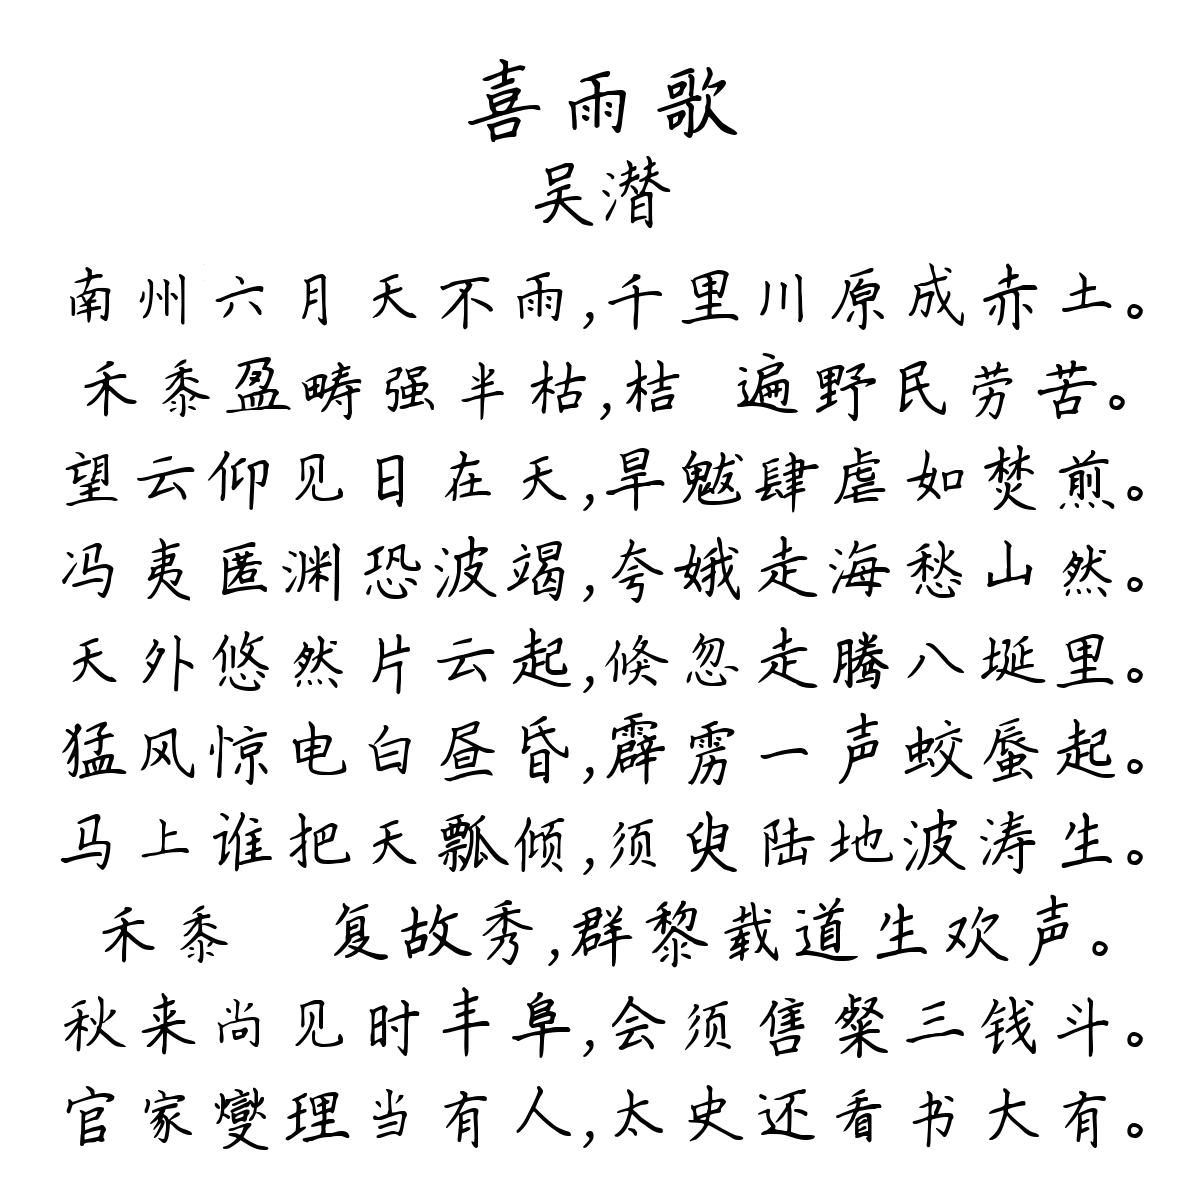 喜雨歌
吴潜
南州六月天不雨,千里川原成赤土。
禾黍盈畴强半枯,桔 遍野民劳苦。
望云仰见日在天,旱魃肆虐如焚煎。
冯夷匿渊恐波竭,夸娥走海愁山然。
天外悠然片云起,倏忽走腾八埏里。
猛风惊电白昼昏,霹雳一声蛟蜃起。
马上谁把天瓢倾,须臾陆地波涛生。
禾黍 复故秀,群黎载道生欢声。
秋来尚见时丰阜,会须售粲三钱斗。
官家燮理当有人,太史还看书大有。